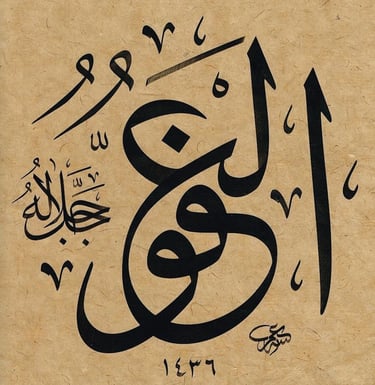 الْغَفُورُ
جَلَّ جَلَالُهُ
١٤٣٦